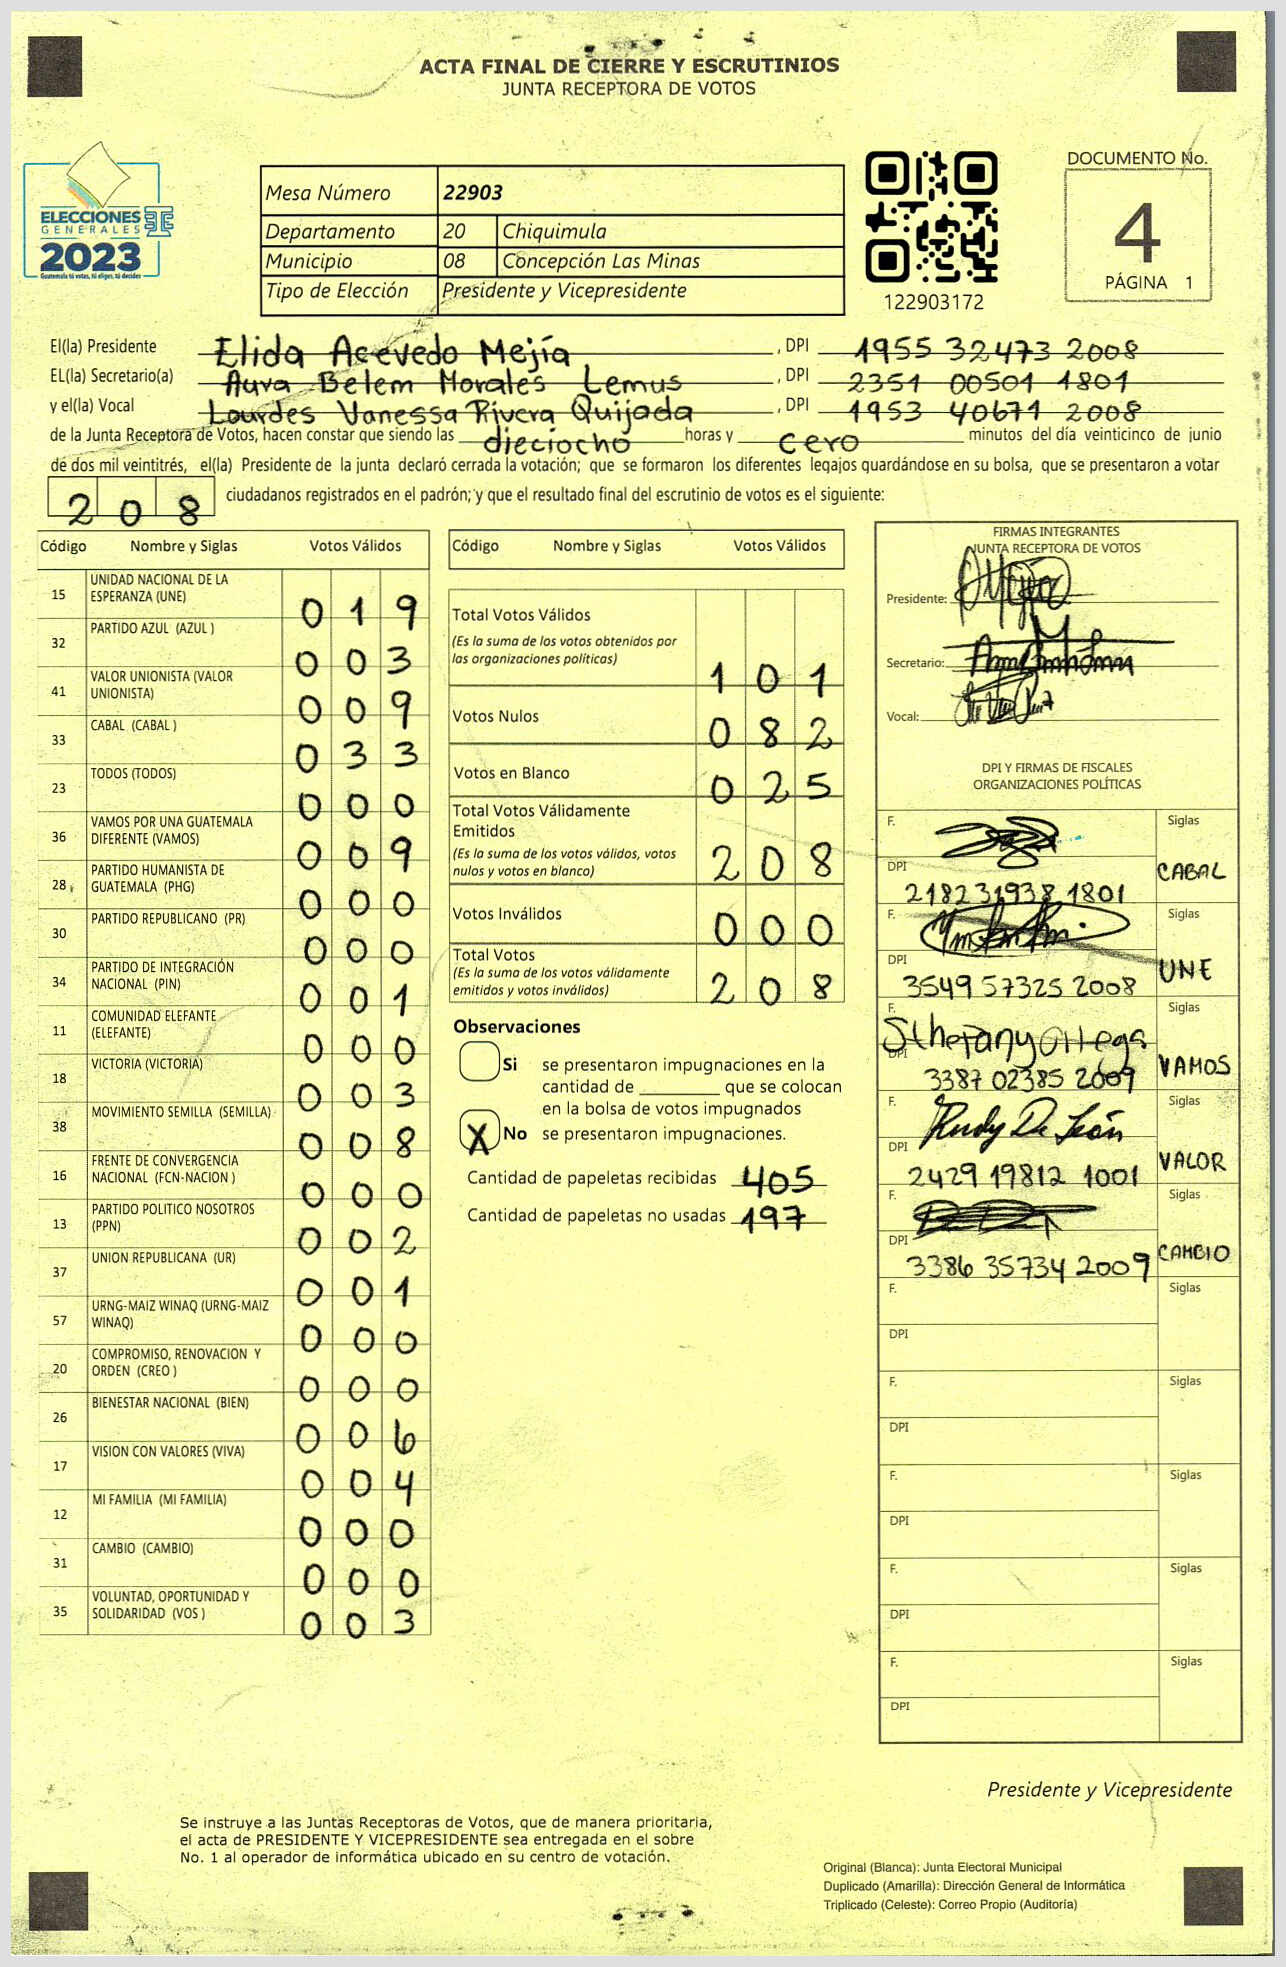 ACTA FINAL DE CIERRE Y ESCRUTINIOS
JUNTA RECEPTORA DE VOTOS
ELECCIONES
GENERALES
2023
Guatemala tú votas, tú eliges, tú decides
Mesa Número 22903
Departamento 20 Chiquimula
Municipio 08 Concepción Las Minas
Tipo de Elección Presidente y Vicepresidente
122903172
DOCUMENTO No.
4
PÁGINA 1
El(la) Presidente Elida Acevedo Mejía , DPI 1955 32473 2008
EL(la) Secretario(a) Aura Belem Morales Lemus , DPI 2351 00501 1801
y el(la) Vocal Lourdes Vanessa Rivera Quijada , DPI 1953 40671 2008
de la Junta Receptora de Votos, hacen constar que siendo las dieciocho horas y cero minutos del día veinticinco de junio
de dos mil veintitrés, el(la) Presidente de la junta declaró cerrada la votación; que se formaron los diferentes legajos guardándose en su bolsa, que se presentaron a votar
208 ciudadanos registrados en el padrón; y que el resultado final del escrutinio de votos es el siguiente:
Código Nombre y Siglas Votos Válidos
15 UNIDAD NACIONAL DE LA ESPERANZA (UNE) 019
32 PARTIDO AZUL (AZUL ) 003
41 VALOR UNIONISTA (VALOR UNIONISTA) 009
33 CABAL (CABAL ) 033
23 TODOS (TODOS) 000
36 VAMOS POR UNA GUATEMALA DIFERENTE (VAMOS) 009
28 PARTIDO HUMANISTA DE GUATEMALA (PHG) 000
30 PARTIDO REPUBLICANO (PR) 000
34 PARTIDO DE INTEGRACIÓN NACIONAL (PIN) 001
11 COMUNIDAD ELEFANTE (ELEFANTE) 000
18 VICTORIA (VICTORIA) 003
38 MOVIMIENTO SEMILLA (SEMILLA) 008
16 FRENTE DE CONVERGENCIA NACIONAL (FCN-NACION ) 000
13 PARTIDO POLITICO NOSOTROS (PPN) 002
37 UNION REPUBLICANA (UR) 001
57 URNG-MAIZ WINAQ (URNG-MAIZ WINAQ) 000
20 COMPROMISO, RENOVACION Y ORDEN (CREO ) 000
26 BIENESTAR NACIONAL (BIEN) 006
17 VISION CON VALORES (VIVA) 004
12 MI FAMILIA (MI FAMILIA) 000
31 CAMBIO (CAMBIO) 000
35 VOLUNTAD, OPORTUNIDAD Y SOLIDARIDAD (VOS ) 003
Código Nombre y Siglas Votos Válidos
Total Votos Válidos
(Es la suma de los votos obtenidos por
las organizaciones políticas) 101
Votos Nulos 082
Votos en Blanco 025
Total Votos Válidamente
Emitidos
(Es la suma de los votos válidos, votos
nulos y votos en blanco) 208
Votos Inválidos 000
Total Votos
(Es la suma de los votos válidamente
emitidos y votos inválidos) 208
Observaciones
Si se presentaron impugnaciones en la
cantidad de ________ que se colocan
en la bolsa de votos impugnados
X No se presentaron impugnaciones.
Cantidad de papeletas recibidas 405
Cantidad de papeletas no usadas 197
FIRMAS INTEGRANTES
JUNTA RECEPTORA DE VOTOS
Presidente:
Secretario:
Vocal:
DPI Y FIRMAS DE FISCALES
ORGANIZACIONES POLÍTICAS
F. Siglas
DPI 2182 31938 1801 CABAL
F. Siglas
DPI 3549 57325 2008 UNE
F. Sthefany Ortega Siglas
DPI 3387 02385 2009 VAMOS
F. Rudy De León Siglas
DPI 2429 19812 1001 VALOR
F. Siglas
DPI 3386 35734 2009 CAMBIO
F. Siglas
DPI
F. Siglas
DPI
F. Siglas
DPI
F. Siglas
DPI
F. Siglas
DPI
Presidente y Vicepresidente
Se instruye a las Juntas Receptoras de Votos, que de manera prioritaria,
el acta de PRESIDENTE Y VICEPRESIDENTE sea entregada en el sobre
No. 1 al operador de informática ubicado en su centro de votación.
Original (Blanca): Junta Electoral Municipal
Duplicado (Amarilla): Dirección General de Informática
Triplicado (Celeste): Correo Propio (Auditoría)